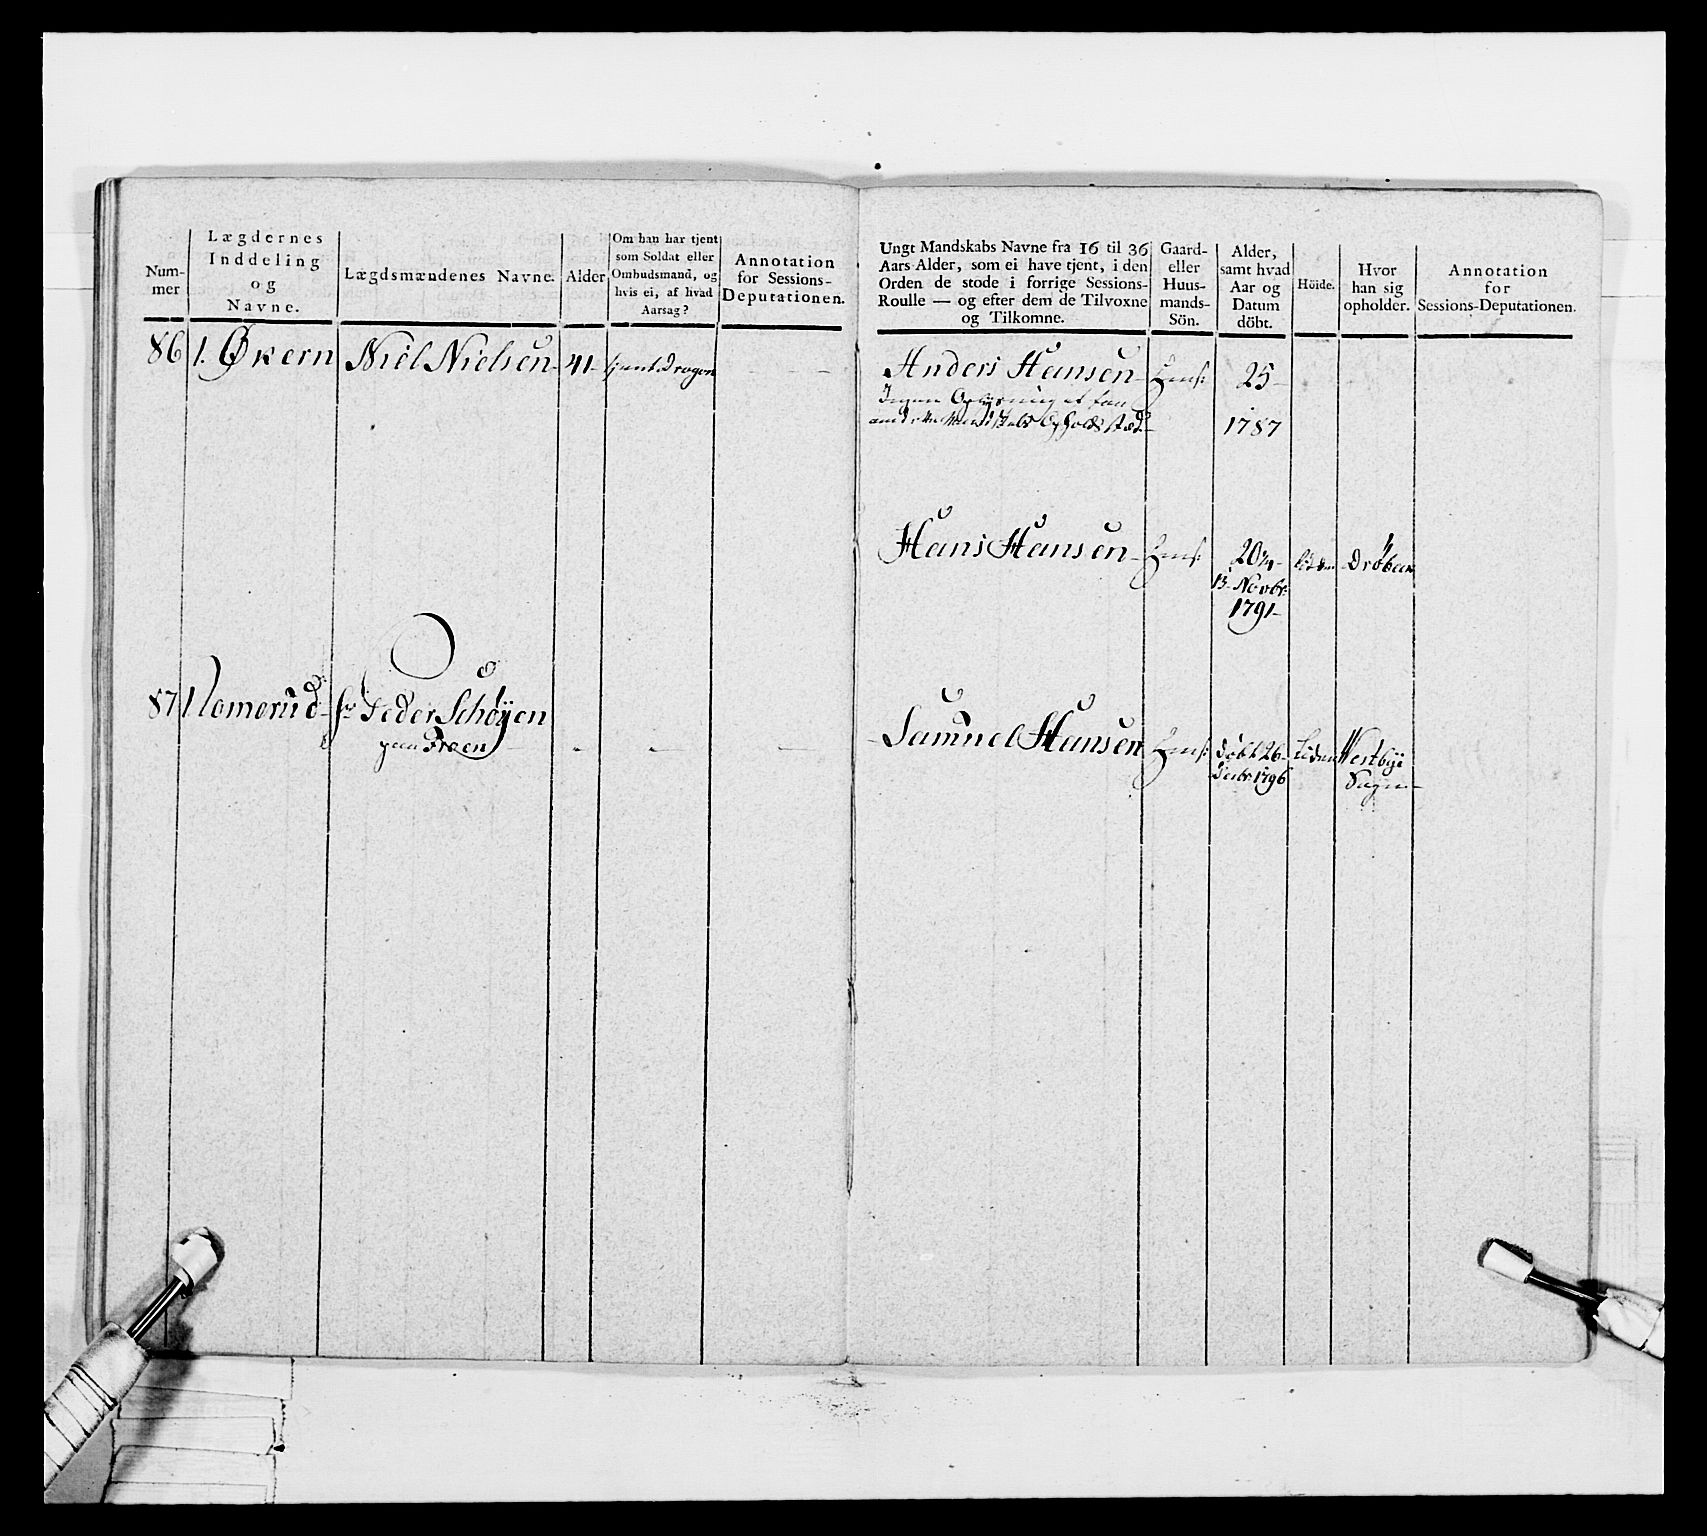 Num-
mer
Lægdernes
Inddeling
og
Navne.
Lægdsmændenes Navne.
Alder
Om han har tjent
som Soldat eller
Ombudsmand, og
hvis ei, af hvad
Aarsag?
Annotation
for Sessions-
Deputationen.
86
1. Økern
Niel Nielsen
41-
tjent Dragon
87
Peder Schøyen
paa Froen
Ungt Mandskabs Navne fra 16 til 36
Aars Alder, som ei have tjent, i den
Orden de stode i forrige Sessions-
Roulle — og efter dem de Tilvoxne
og Tilkomne.
Gaard-
eller
Huus-
mands-
Sön.
Alder,
samt hvad
Aar og
Datum
döbt.
Höide.
Hvor
han sig
opholder.
Annotation
for
Sessions-Deputationen.
Anders Hansen
25-
Ingen Oplysning
1787
Hans Hansen
20
Drøbak
13- Novbr:
1791-
Samuel Hansen
døbt 26-
Westbye
1796
Sogn